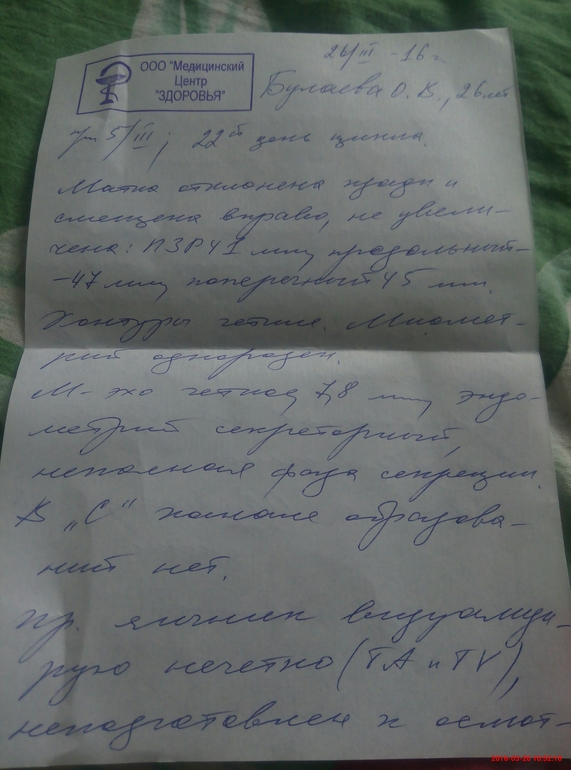 ООО "Медицинский
Центр
"ЗДОРОВЬЯ"
26/III -16 г.
Булаева О. В., 26 лет
5/III; 22й день цикла.
Матка отклонена кзади и
смещена вправо, не увели-
чена: ПЗР 41 мм, продольный-
-47 мм, поперечный 45 мм.
Контуры четкие. Миомет-
рий однороден.
М-эхо четкое 7,8 мм, эндо-
метрий секреторный,
неполная фаза секреции.
В "С" канале образова-
ний нет.
Пр. яичник визуализи-
рую нечетко (ТА и TV),
неподготовлен к осмот-